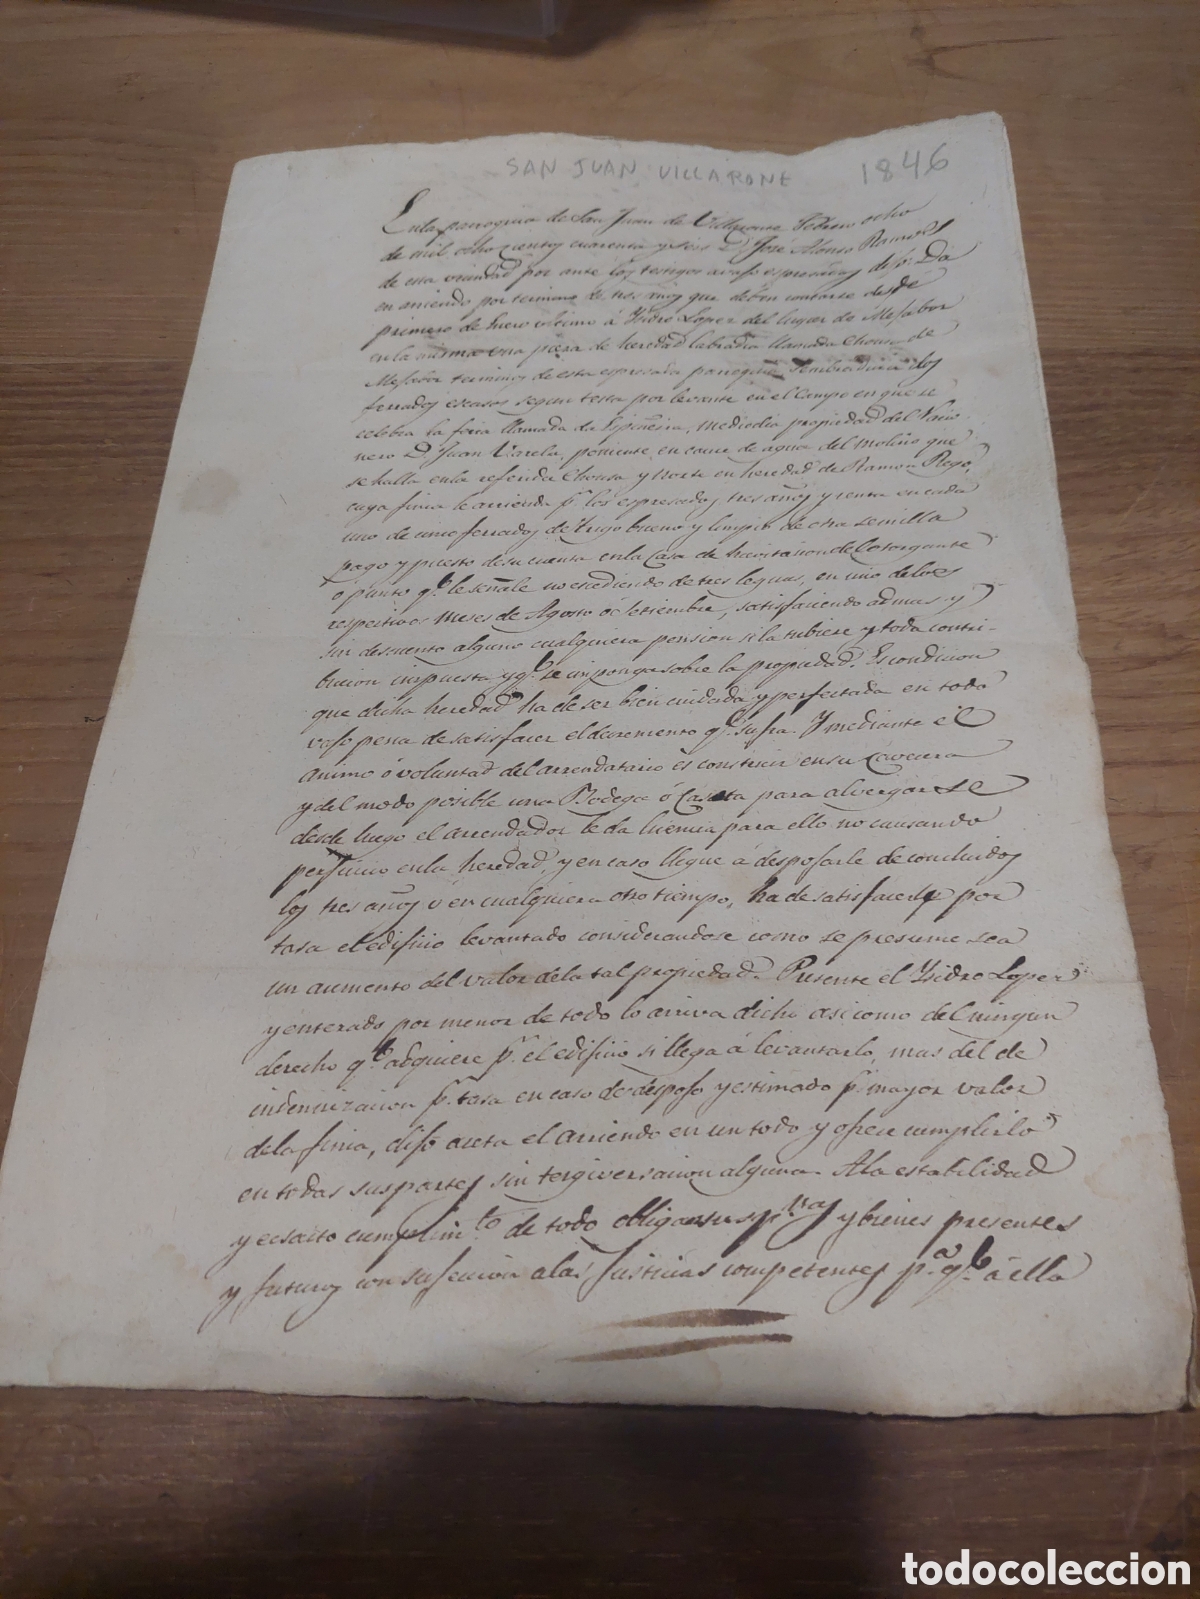 SAN JUAN VILLARONE 1846
En la parroquia de San Juan de Villaronte Febrero ocho
de mil ocho zientos cuarenta y seis D.n José Alonso
de esta vecindad por ante los testigos avajo espresados dijo: Da
en arriendo por termino de tres años que deben contarse desde
primero de Enero ultimo á Ysidro Lopez del lugar de Mesabor
en la misma una pieza de heredad labradia llamada Chousa de
Mesabor terminos de esta espresada parroquia sembradura dos
ferrados escasos segun testa por levante en el Campo en que se
celebra la feria llamada da Espiñeira, mediodia propiedad del
D.n Juan Varela, poniente en cauce de agua del molino que
se halla en la referida Chousa y Norte en heredad de Ramon Rego,
cuya finca le arrienda p.r los espresados tres años y renta en cada
uno de cinco ferrados de trigo bueno y limpio de otra semilla
pago y puesto de su cuenta en la Casa de havitacion del otorgante
ó punto q.e le señale no escediendo de tres leguas, en uno de los
respectivos meses de Agosto ó Setiembre, satisfaciendo ademas y
sin descuento alguno cualquiera pension si la tubiere y toda contri-
bucion impuesta y q.e se imponga sobre la propiedad. Es condicion
que dicha heredad ha de ser bien cuidada y perfectada en todo
vajo pena de satisfacer el decremento q.e sufra. Y mediante el
animo ó voluntad del arrendatario es construir en su Cavecera
y del modo posible una Bodega ó Caseta para alvergarse
desde luego el arrendador le da licencia para ello no causando
perjuicio en la heredad, y en caso llegue á desposarle de concluidos
los tres años ó en cualquiera otro tiempo, ha de satisfacerle por
tasa el edificio levantado considerandose como se presume sea
un aumento del valor de la tal propiedad. Presente el Ysidro Lopez
y enterado por menor de todo lo arriva dicho asi como del ningun
derecho q.e adquiere p.r el edificio si llega á levantarlo, mas del de
indemnizacion p.r tasa en caso de desposo y estimado p.r mayor valor
de la finca, dijo aceta el arriendo en un todo y ofrece cumplirlo
en todas sus partes sin tergiversacion alguna. A la estabilidad
y ecsacto cumplim.to de todo obligan sus p.r.nas y bienes presentes
y futuros con sujecion a las Justicias competentes p.a q.e á ella
todocoleccion